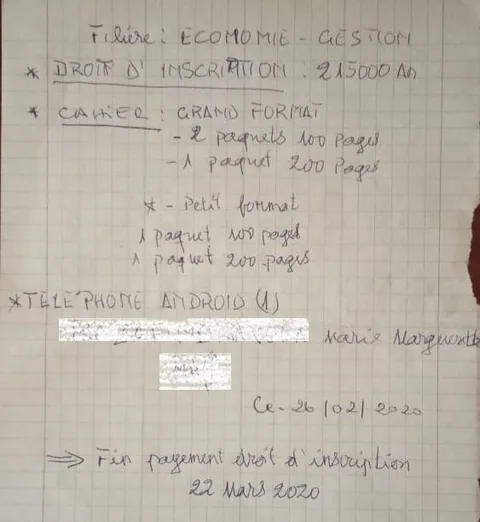 Filière : ECOMOMIE - GESTION
* DROIT D'INSCRIPTION : 215000 An
* CAHIER : GRAND FORMAT
- 2 paquets 100 pages
- 1 paquet 200 Pages
* - Petit format
1 paquet 100 pages
1 paquet 200 pages
* TELEPHONE ANDROID (1)
Marie Marguerite
Ce - 26/02/2020
⇒ Fin payement droit d'inscription
22 Mars 2020